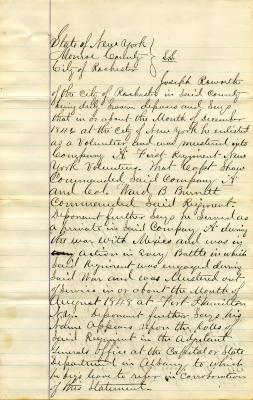 State of New York
Monroe County } SS
City of Rochester
Joseph Raworth
of the City of Rochester in said County
being duly sworn deposes and says
that in or about the Month of December
1846 at the City of New York he enlisted
as a Volunteer and was mustered into
Company A First Regiment New
York Volunteers that Capt Shaw
Commanded said Company A
and Col. Ward B Burnett
Commanded said Regiment.
Deponent further says he served as
a private in said Company A during
the war with Mexico and was in
action in every Battle in which
said Regiment was engaged during
said War and was Mustered out
of service in or about the Month of
August 1848 at Fort Hamilton
N.Y. Deponent further says his
Name appears upon the Rolls of
said Regiment in the Adjutant
Generals office at the Capital or State
Department in Albany to which
he begs leave to refer in corroboration
of this Statement.